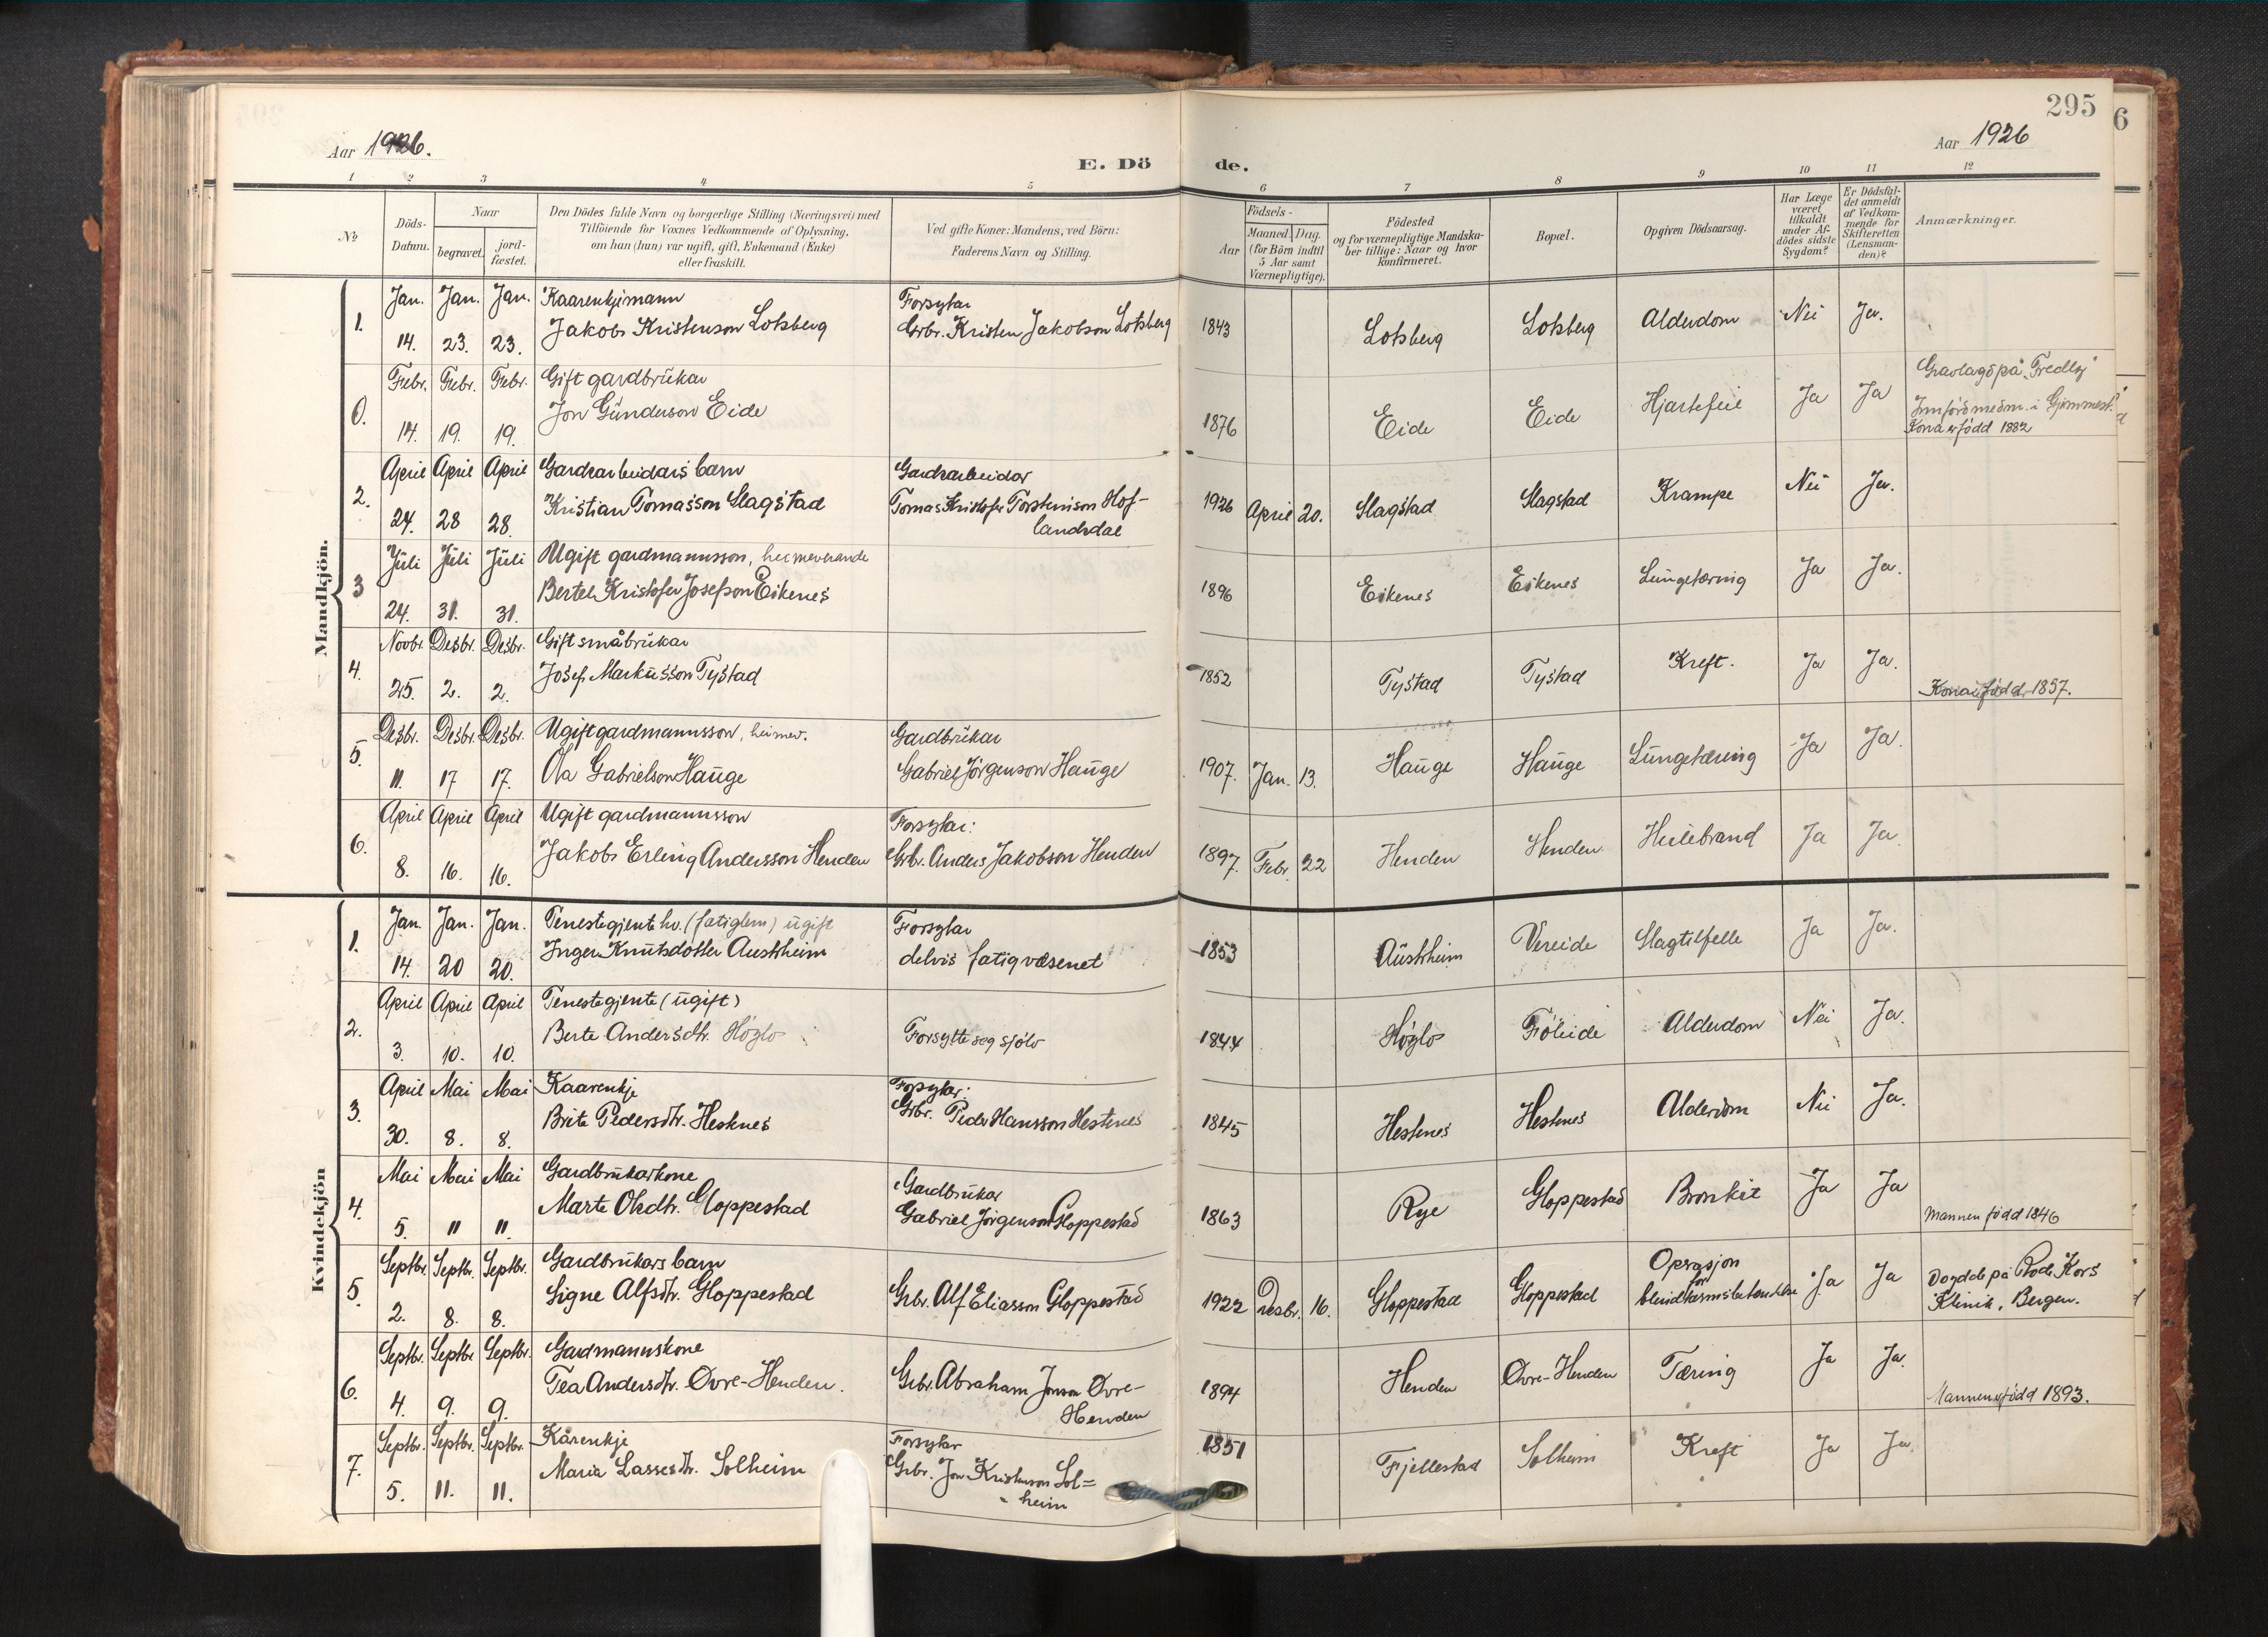 295
6
Aar 1926.
Aar 1926
E. Dö de.
1 2 3 4 5 6 7 8 9 10 11 12
No
Döds-
Datum.
Naar
begravet.
jord-
fæstet.
Den Dödes fulde Navn og borgerlige Stilling (Næringsvei) med
Tilföiende for Voxnes Vedkommende af Oplysning,
om han (hun) var ugift, gift, Enkemand (Enke)
eller fraskilt.
Ved gifte Koner: Mandens, ved Börn:
Faderens Navn og Stilling.
Födsels-
Aar
Maaned. Dag.
(for Börn indtil
5 Aar samt
Værnepligtige).
Födested
og for værnepligtige Mandska-
ber tillige: Naar og hvor
konfirmeret.
Bopæl.
Opgiven Dödsaarsag.
Har Læge
været
tilkaldt
under Af-
dödes sidste
Sygdom?
Er Dödsfal-
det anmeldt
af Vedkom-
mende for
Skifteretten
(Lensman-
den)?
Anmærkninger.
Mandkjön.
1. Jan. 14. Jan. 23. Jan. 23.
Kaarenkjemann
Jakob Kristenson Lotsberg
Forsytar
Grbr. Kristen Jakobson Lotsberg
1843 Lotsberg Lotsberg Alderdom Nei Ja.
0. Febr. 14. Febr. 19. Febr. 19.
Gift gardbrukar
Jon Gunderson Eide
1876 Eide Eide Hjartefeil Ja Ja
Gravlagd på
Innförd i Gimmest.
Kona er född 1882
2. April 24. April 28 April 28.
Gardsarbeidars barn
Kristian Tomasson Slagstad
Gardsarbeidar
Tomas Kristofer Torsteinson Hof-
landsdal
1926 April 20. Slagstad Slagstad Krampe Nei Ja.
3 Juli 24. Juli 31. Juli 31.
Ugift gardmannsson, heimeverande
Bertel Kristofer Josefson Eikenes
1896 Eikenes Eikenes Lungetæring Ja Ja.
4. Novbr. 25. Desbr. 2. Desbr. 2.
Gift småbrukar
Josef Markusson Tystad
1852 Tystad Tystad Kreft. Ja Ja.
Kona er född 1857.
5. Desbr. 11. Desbr. 17 Desbr. 17.
Ugift gardmannsson, heimev.
Ola Gabrielson Hauge
Gardbrukar
Gabriel Jörgenson Hauge
1907. Jan. 13. Hauge Hauge Lungetæring Ja Ja.
6. April 8. April 16. April 16.
Ugift gardmannsson
Jakob Erling Andersson Henden
Forsytar:
Grbr. Anders Jakobson Henden
1897. Febr. 22 Henden Henden Heilebrand Ja Ja
Kvindekjön
1. Jan. 14. Jan. 20 Jan. 20.
Tenestegjente hv. (fatiglem) ugift
Inger Knutsdotter Austrheim
Forsytar
delvis fatigvæsenet
1853 Austrheim Vereide Slagtilfelle Ja Ja.
2. April 3. April 10. April 10.
Tenestegjente (ugift)
Berte Andersdtr. Höglo
Forsytte seg sjölv
1844 Höglo Föleide Alderdom Nei Ja.
3. April 30. Mai 8. Mai 8.
Kaarenkje
Brite Pedersdtr. Hestnes
Forsytar:
Grbr. Peder Hansson Hestnes
1845 Hestnes Hestnes Alderdom Nei Ja.
4. Mai 5. Mai 11 Mai 11.
Gardbrukarkone
Marte Olsdtr. Gloppestad
Gardbrukar
Gabriel Jörgenson Gloppestad
1863 Rye Gloppestad Bronkit Ja Ja
Mannen född 1846
5. Septbr. 2. Septbr. 8. Septbr. 8.
Gardbrukars barn
Signe Alfsdtr. Gloppestad
Grbr. Alf Eliasson Gloppestad
1922 Desbr. 16. Gloppestad Gloppestad
Oprasjon
for
blindtarmsbetendelse
Ja Ja
Döydde på Röde Kors
Klinik, Bergen.
6. Septbr. 4. Septbr 9. Septbr. 9.
Gardmannskone
Tea Andersdtr. Övre-Henden.
Grbr. Abraham Jonson Övre-
Henden
1894 Henden Övre-Henden Tæring Ja Ja.
Mannen er född 1893.
7. Septbr. 5. Septbr. 11. Septbr. 11.
Kårenkje
Maria Lassesdtr. Solheim
Forsytar
Grbr. Jon Kristenson Sol=
heim
1851 Fjellestad Solheim Kreft Ja Ja.